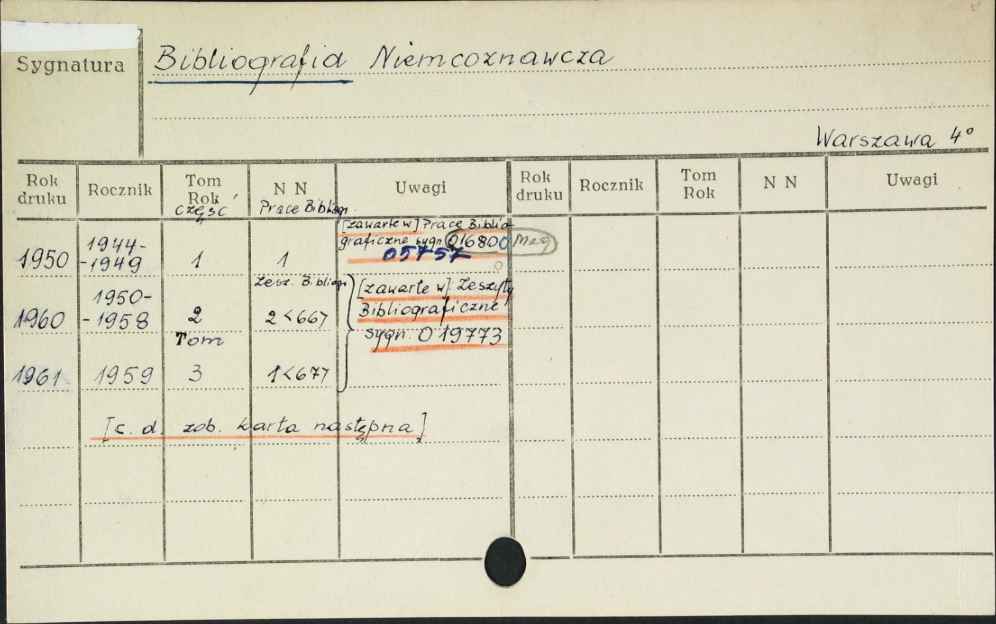 Sygnatura
Bibliografia Niemcoznawcza
Warszawa 4°
Rok druku Rocznik Tom Rok N N Uwagi Rok druku Rocznik Tom Rok N N Uwagi
część Prace Bibliogr.
[zawarte w] Prace Biblio-
graficzne sygn. 016800 Mag
1944- 05757
1950 -1949 1 1
Zesz. Bibliogr. [zawarte w] Zeszyty
1950- Bibliograficzne
1960 -1958 2 2<667
Tom sygn. 019773
1961 1959 3 1<677
[c. d. zob. karta następna]